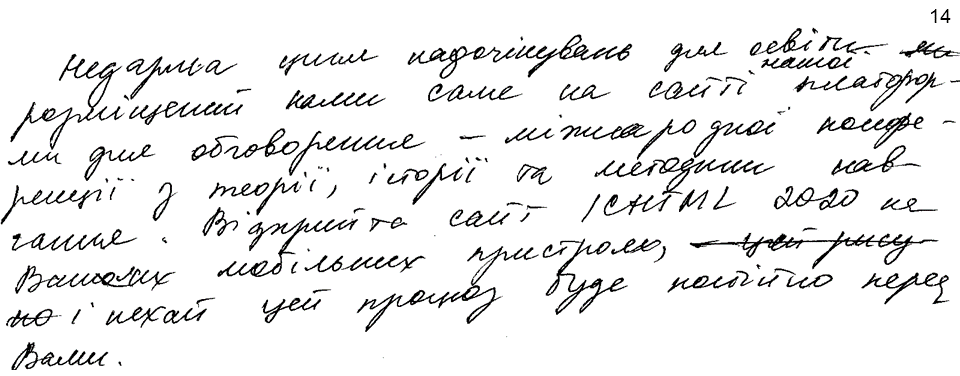 14
Недарма цикл надочікувань для освіти ~~ми~~
розміщений нами саме на сайті нашої платфор-
ми для обговорення – міжнародної конфе-
ренції з теорії, історії та методики нав-
чання. Відкрийте сайт ICHTML 2020 на
Ваших мобільних пристроях, ~~– цей рису-~~
~~но~~ і нехай цей прогноз буде постійно перед
Вами.